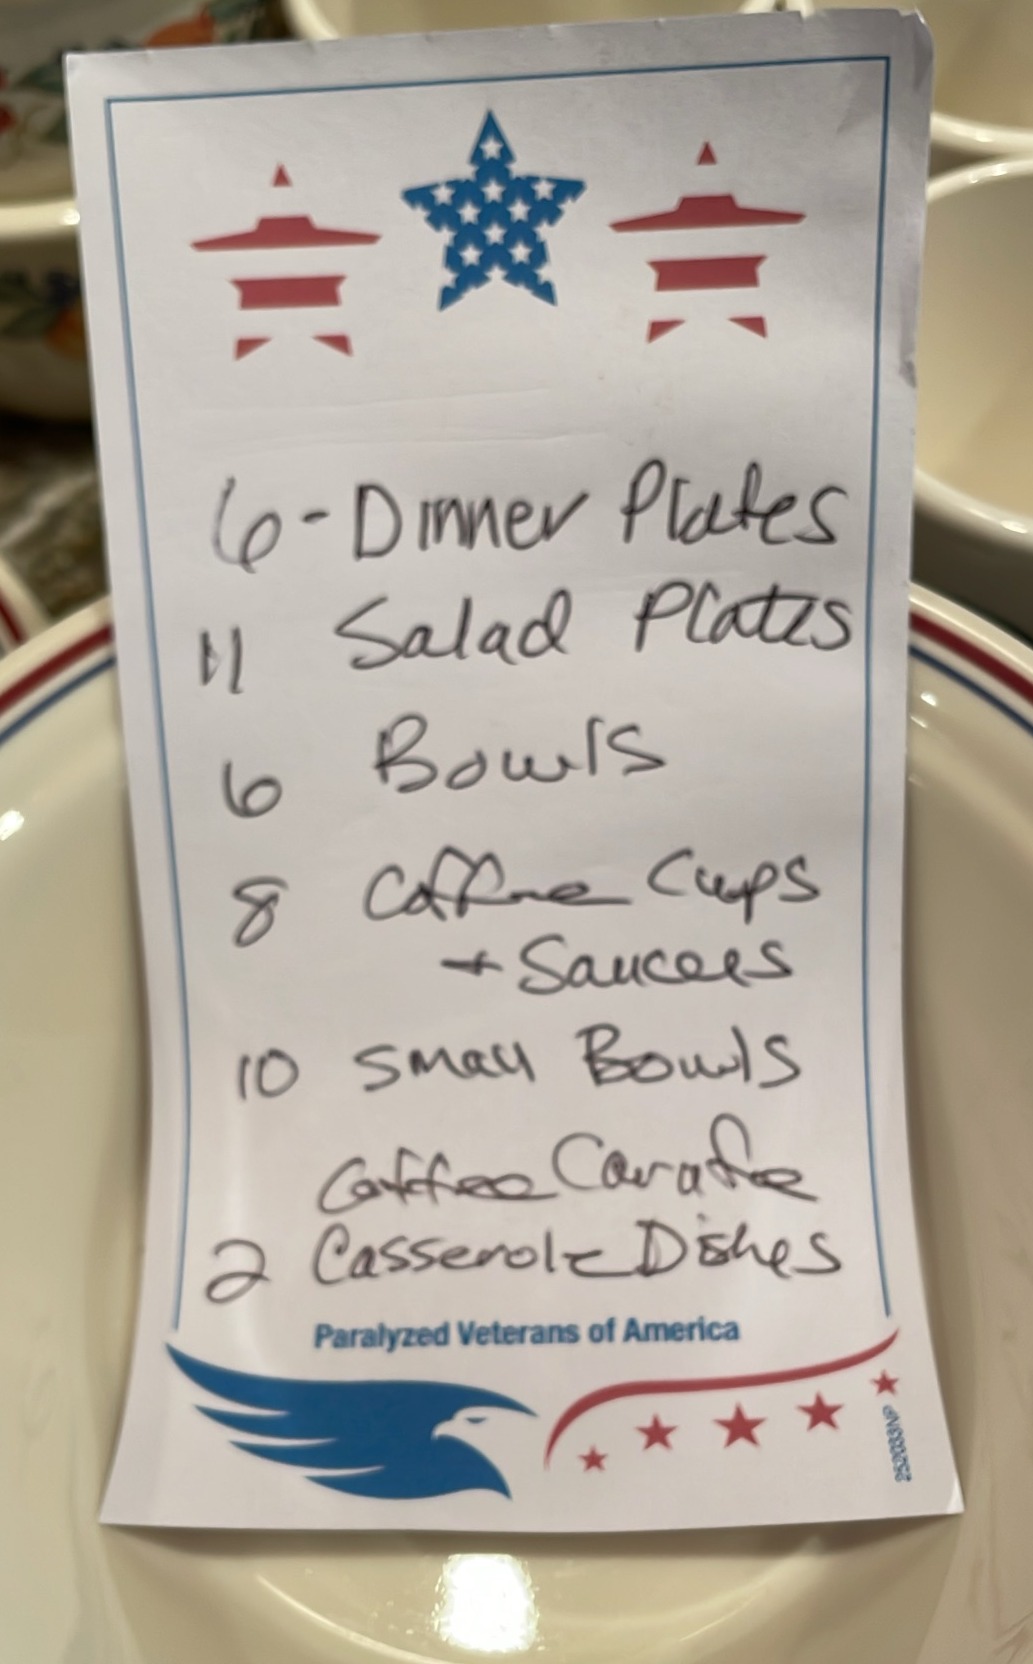 6 - Dinner Plates
11 Salad Plates
6 Bowls
8 Coffee Cups
+ Saucers
10 Small Bowls
Coffee Carafe
2 Casserole Dishes
Paralyzed Veterans of America